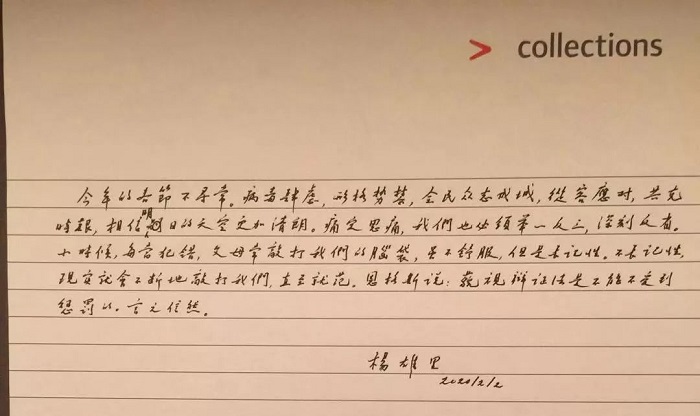 > collections
今年的春節不尋常。病毒肆虐，形格势禁，全民众志成城，從容應对，共克
時艱，相信明日的天空更加清朗。痛定思痛，我們也必须举一反三，深刻反省。
小時候，每当犯错，父母常敲打我們的腦袋，虽不舒服，但是长记性。不长记性，
现实就会不断地敲打我們，直至就范。恩格斯说：藐视辩证法是不能不受到
惩罚的。言之信然。
楊雄里
2020/2/2